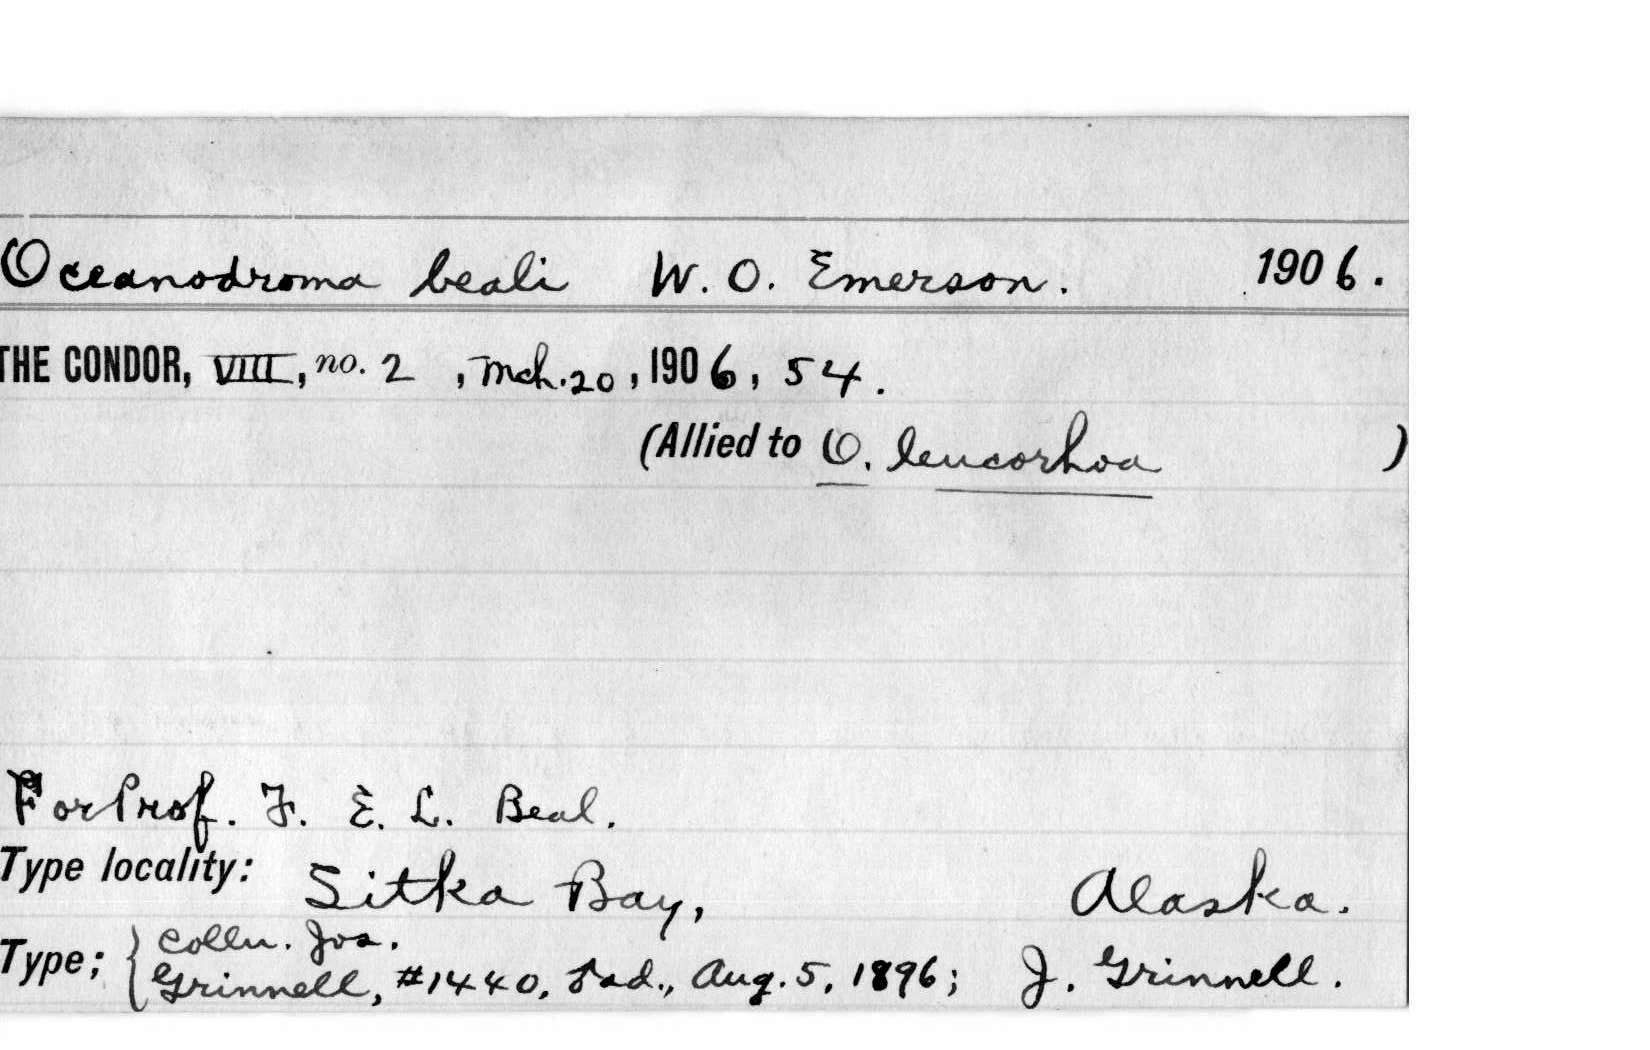 Oceanodroma beali W. O. Emerson. 1906.
THE CONDOR, VIII, no. 2 , Mch. 20 , 1906 , 54 .
(Allied to O. leucorhoa )
For Prof. F. E. L. Beal.
Type locality: Sitka Bay, Alaska.
Type; { Colln. Jos.
Grinnell, #1440, ad., Aug. 5, 1896; J. Grinnell.